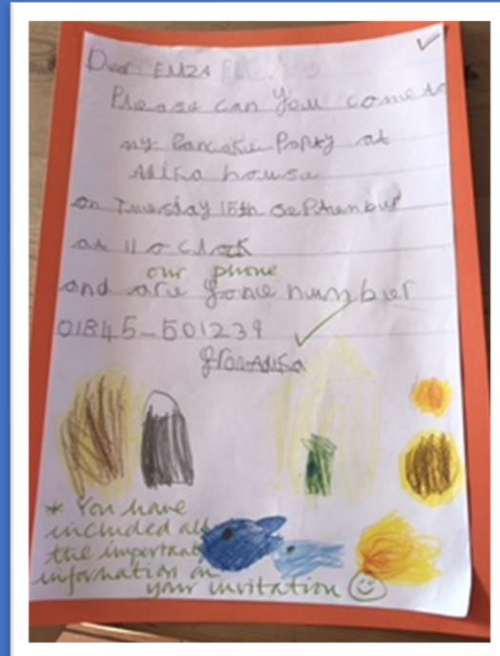 Dear EMZA
Please can you come to
my Pancake Party at
Adika house
on Tuersday 15th SePtember
at 11 o clock
our phone
and are fone number
01845-501239
from Adika
* You have
included all
the important
information on
your invitation